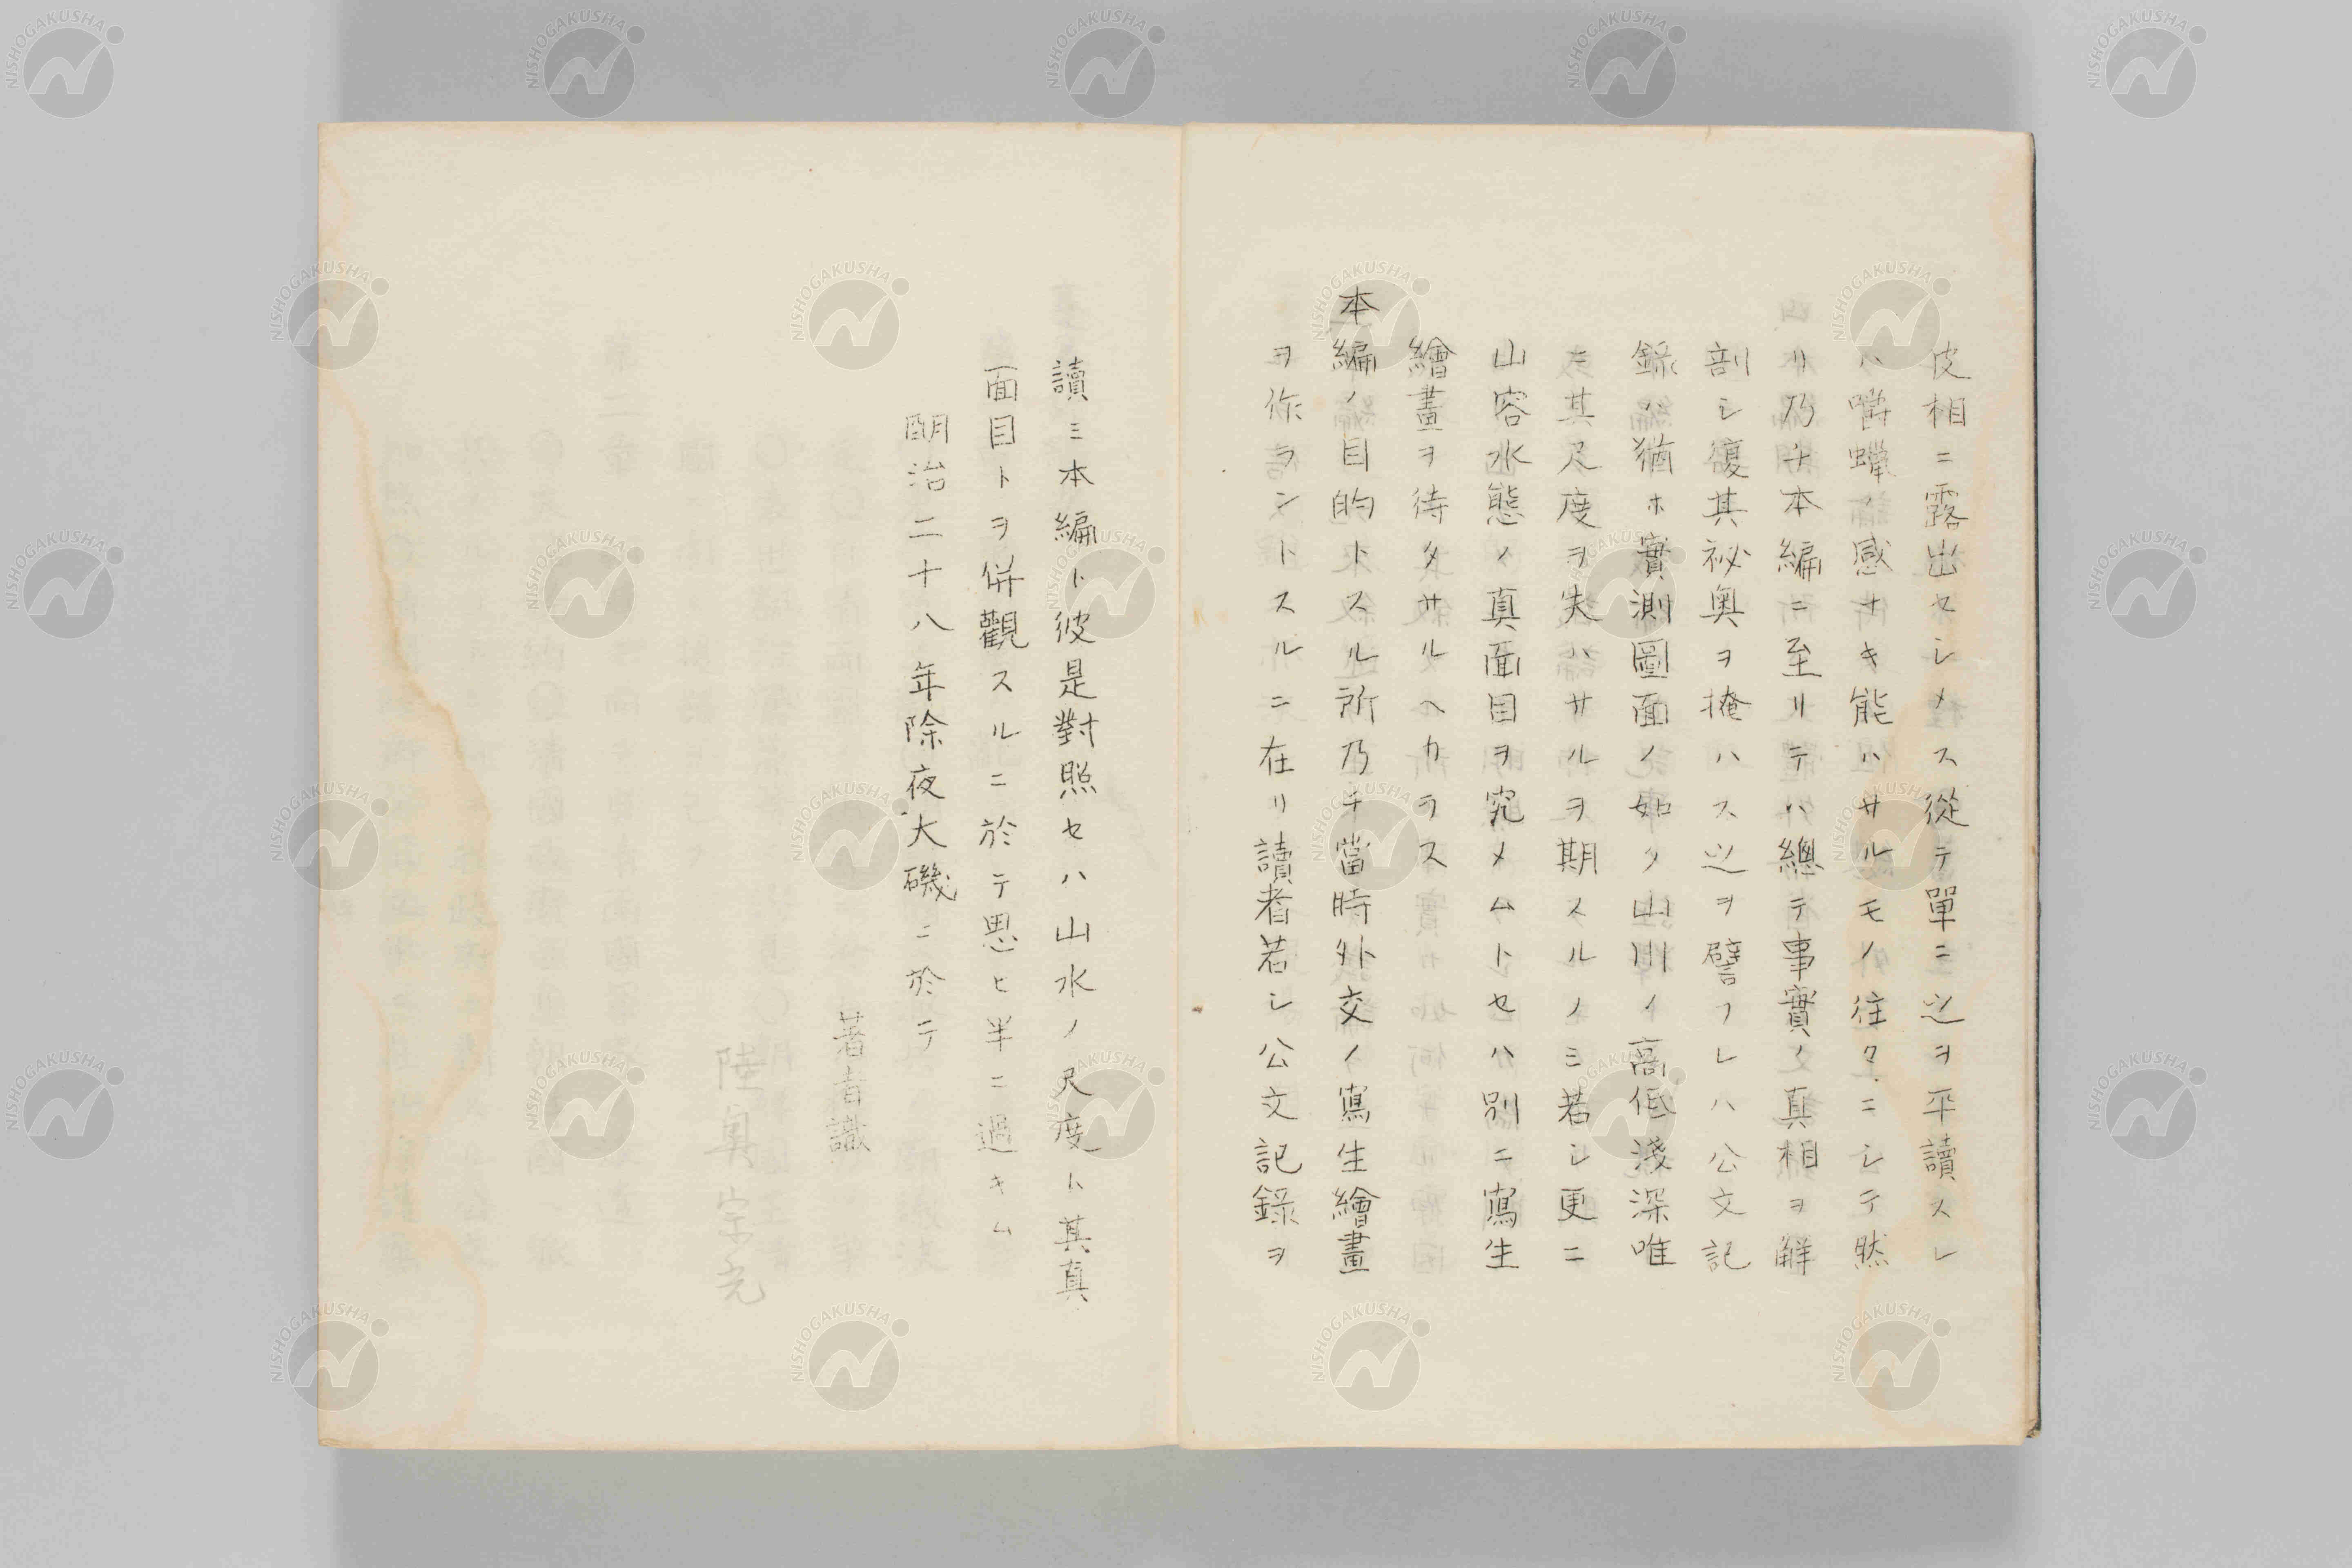 皮相ニ露出セシメス從テ單ニ之ヲ平讀スレ
ハ嚼蠟ノ感ナキ能ハサルモノ往々ニシテ然
リ乃チ本編ニ至リテハ總テ事實ノ真相ヲ解
剖シ復其祕奥ヲ掩ハス之ヲ譬フレハ公文記
錄ハ猶ホ實測圖面ノ如ク山川ノ高低淺深唯
ニ其尺度ヲ失ハサルヲ期スルノミ若シ更ニ
山容水態ノ真面目ヲ究メムトセハ別ニ寫生
繪畫ヲ待タサルヘカラス
本編ノ目的トスル所乃チ當時外交ノ寫生繪畫
ヲ作ラントスルニ在リ讀者若シ公文記錄ヲ
讀ミ本編ト彼是對照セハ山水ノ尺度ト其真
面目トヲ併觀スルニ於テ思ヒ半ニ過キム
明治二十八年除夜大磯ニ於テ
著者識
陸奥宗光
NISHOGAKUSHA